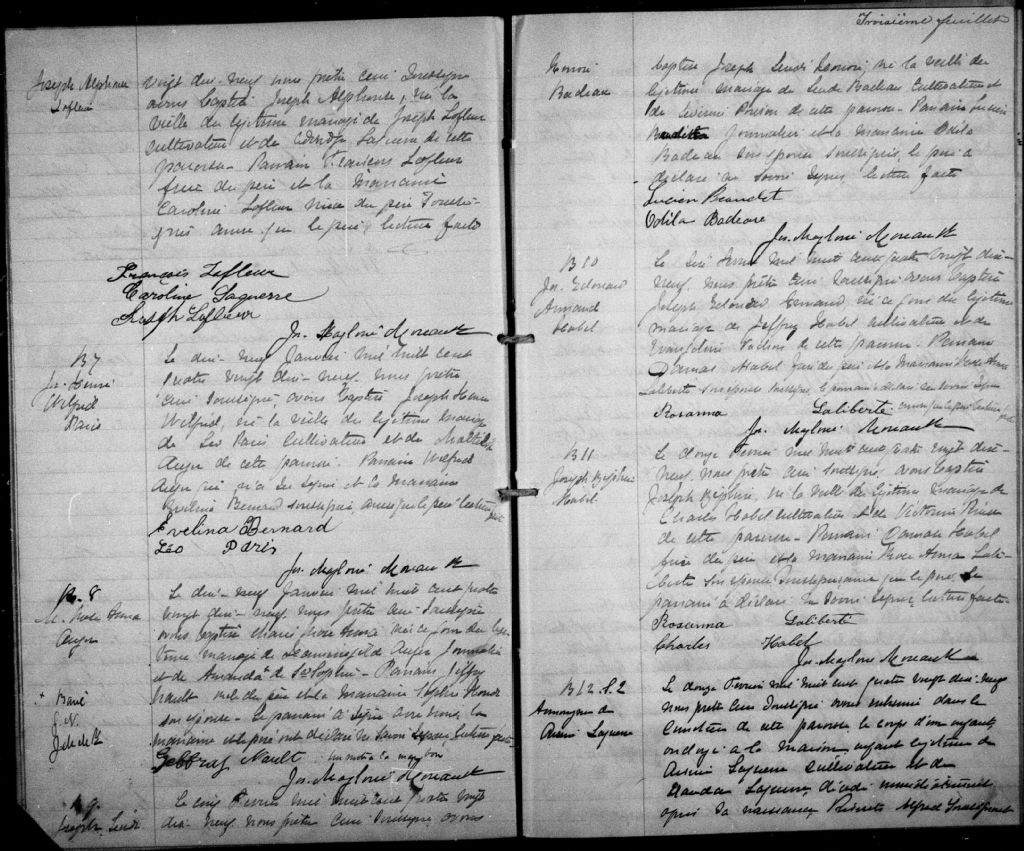 Joseph Alphonse
Lafleur
vingt dix-neuf nous prêtre curé soussigné
avons baptisé Joseph Alphonse, né la
veille du légitime mariage de Joseph Lafleur
cultivateur et de Laguerre de cette
paroisse - Parrain François Lafleur
frère du père et la marraine
Caroline Lafleur nièce du père soussi-
gnés ainsi que le père, lecture faite
François Lafleur
Caroline Laguerre
Joseph Lafleur
Jos. Magloire Moreault
B 7
Jos. Henri
Wilfrid
Paris
Le dix-neuf Janvier mil huit cent
quatre vingt dix-neuf, nous prêtre
curé soussigné, avons baptisé Joseph Henri
Wilfrid, né la veille du légitime mariage
de Léo Paris cultivateur et de Mathilda
Auger de cette paroisse. Parrain Wilfrid
Auger qui n'a su signer et la marraine
Evelina Bernard soussignée, ainsi que le père lecture faite
Evelina Bernard
Léo Paris
Jos. Magloire Moreault
B. 8
M. Rose Anna
Auger
Le dix-neuf Janvier mil huit cent quatre
vingt dix-neuf, nous prêtre curé soussigné
avons baptisé Marie Rose Anna née ce jour du légi-
time mariage de Auger Journalier
et de Amanda de Ste Sophie - Parrain Jeffrey
Nault du père et la marraine Sophie
son épouse - Le parrain a signé avec nous, la
marraine et le père ont déclaré ne savoir signer lecture faite
+ Barré
J. N.
Geffray Nault
un mot
Jos. Magloire Moreault
B 9
Joseph Leudi
Le cinq Février mil huit cent quatre vingt
dix-neuf, nous prêtre curé soussigné, avons
Troisième feuillet
Honoré
Badeau
baptisé Joseph Leudi Honoré, né la veille du
légitime mariage de Badeau cultivateur et
de de cette paroisse - Parrain Lucien
Journalier et la marraine Odila
Badeau son épouse soussignés, le père a
déclaré ne savoir signer lecture faite
Lucien Beaudet
Odila Badeau
Jos. Magloire Moreault
B 10
Jos. Edouard
Armand
Habel
Le six Février mil huit cent quatre vingt dix-
neuf, nous prêtre curé soussigné avons baptisé
Joseph Edouard Armand né ce jour du légitime
mariage de Jeffrey Habel cultivateur et de
Evangéline de cette paroisse - Parrain
Damas Habel frère du père et la marraine Rose Anna
Laliberté son épouse soussignée, le parrain a déclaré ne savoir signer
Rosanna Laliberté ainsi que le père lecture faite
Jos. Magloire Moreault
B 11
Joseph Zéphir
Habel
Le douze Février mil huit cent quatre vingt dix-
neuf, nous prêtre curé soussigné, avons baptisé
Joseph Zéphir, né la veille du légitime mariage de
Charles Habel cultivateur et de Victoria
de cette paroisse - Parrain Damase Habel
frère du père et la marraine Rose Anna Lali-
berté son épouse soussignée ainsi que le père, Le
parrain a déclaré ne savoir signer, lecture faite
Rosanna Laliberté
Charles Habel
Jos. Magloire Moreault
B 12 S. 2
Anonyme de
Arsène Laguerre
Le douze Février mil huit cent quatre vingt dix-neuf
nous prêtre curé soussigné avons inhumé dans le
cimetière de cette paroisse le corps d'un enfant
ondoyé à la maison enfant légitime de
Arsène Laguerre cultivateur et de
Laguerre, décédé immédiatement
après sa naissance, Présents Alfred